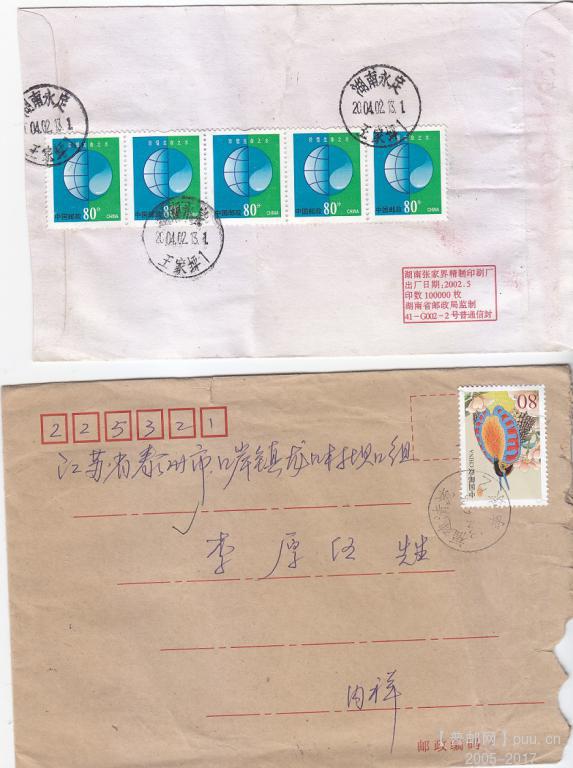 湖南永定
2004.02.13.1
王家坪1
湖南永定
2004.02.13.1
王家坪1
珍惜生命之水
珍惜生命之水
珍惜生命之水
珍惜生命之水
珍惜生命之水
中国邮政 80分 CHINA
中国邮政 80分 CHINA
中国邮政 80分 CHINA
中国邮政 80分 CHINA
中国邮政 80分 CHINA
2004.02.13.1
王家坪1
湖南张家界精制印刷厂
出厂日期:2002.5
印数100000枚
湖南省邮政局监制
41-G002-2号普通信封
225321
80
中国邮政 CHINA
江苏省泰州市口岸镇龙口村坝口组
李厚伍 先生
内祥
邮政编码
【普邮网】puu.cn
2005-2017